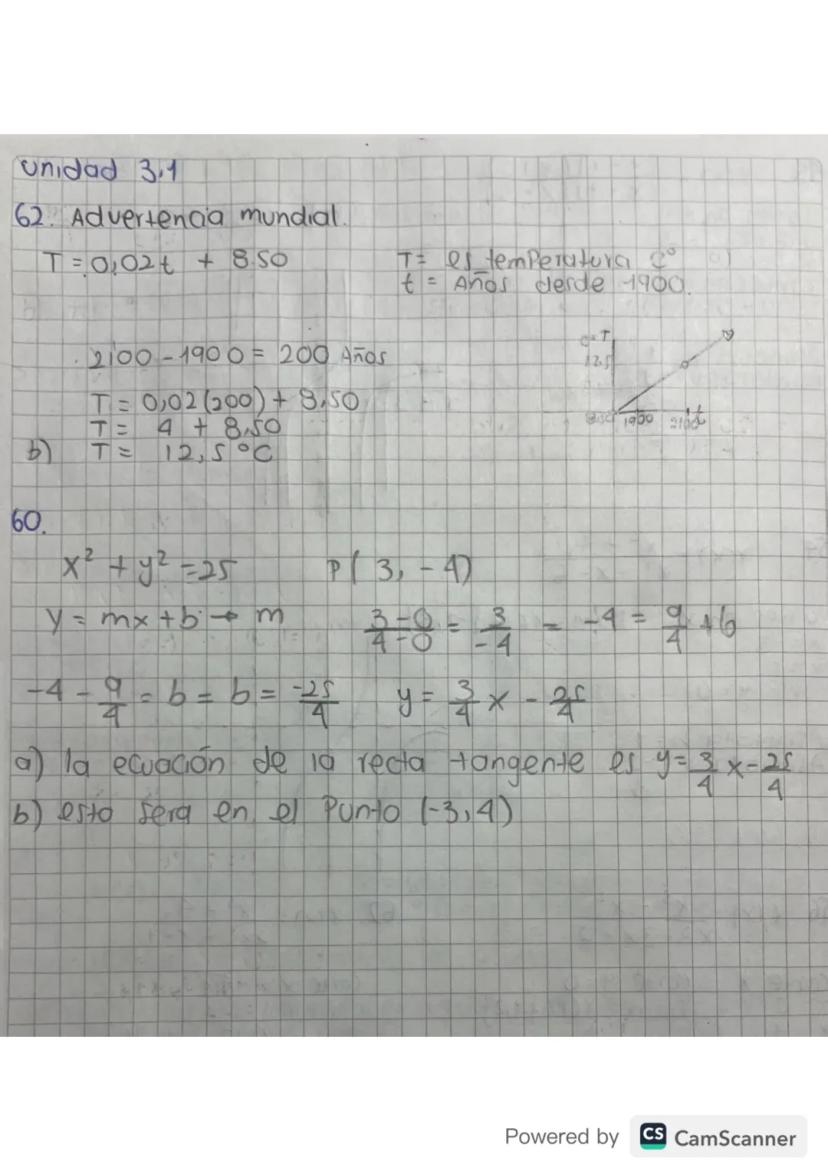 Unidad 3.1
62. Advertencia mundial.
T = 0,02t + 8.50 T = es temperatura C°
t = Años desde 1900.
2100 - 1900 = 200 Años
T = 0,02(200) + 8.50
T = 4 + 8.50
b) T = 12,5 °C
T
12.5
1900
60.
x² + y² = 25 P(3, -4)
y = mx + b → m 3-0/4-0 = 3/-4 = -4 = 9/4 + b
-4 - 9/4 = b = b = -25/4 y = 3/4 x - 25/4
a) la ecuación de la recta tangente es y = 3/4 x - 25/4
b) esto sera en el Punto (-3, 4)
Powered by CS CamScanner